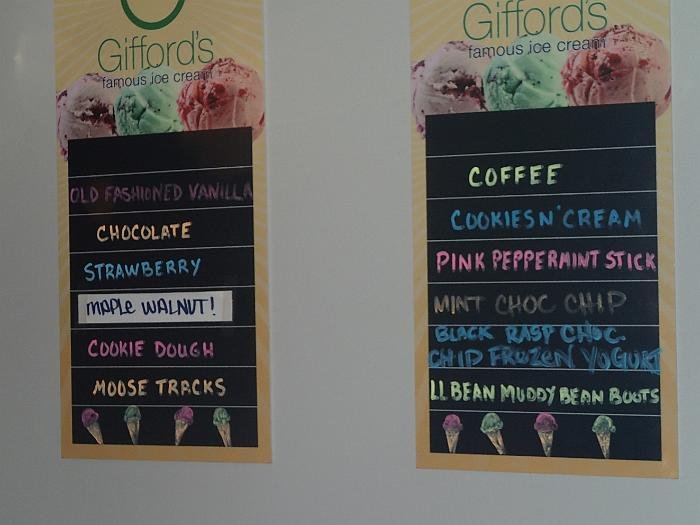 Gifford's
famous ice cream
OLD FASHIONED VANILLA
CHOCOLATE
STRAWBERRY
MAPLE WALNUT!
COOKIE DOUGH
MOOSE TRACKS
Gifford's
famous ice cream
COFFEE
COOKIES N' CREAM
PINK PEPPERMINT STICK
MINT CHOC CHIP
BLACK RASP CHOC.
CHIP FROZEN YOGURT
LL BEAN MUDDY BEAN BOOTS